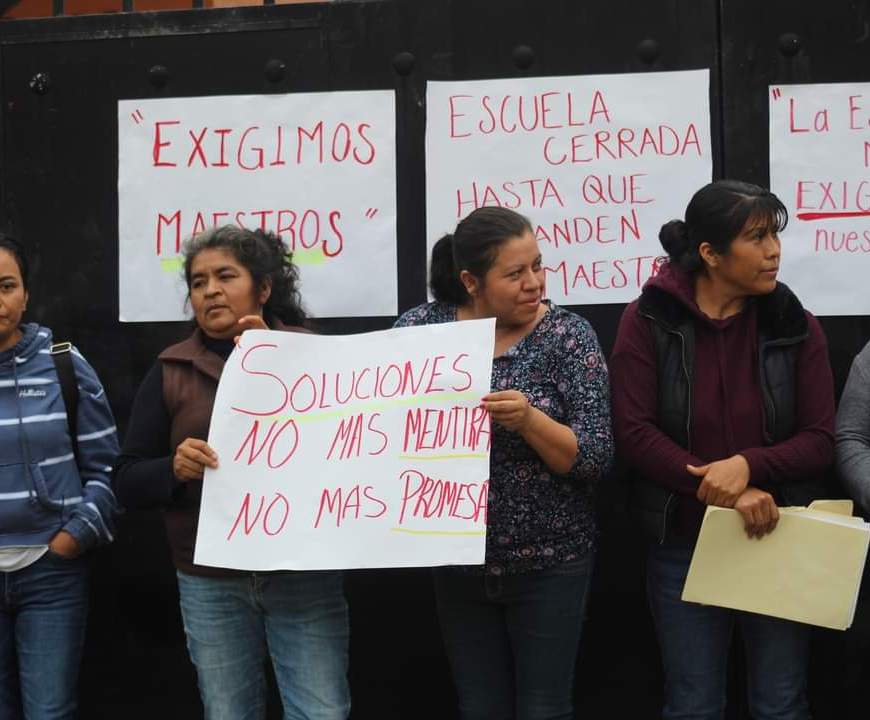 "EXIGIMOS
MAESTROS"
ESCUELA
CERRADA
HASTA QUE
ANDEN
MAESTR
"La E
EXIG
nues
SOLUCIONES
NO MAS MENTIRA
NO MAS PROMESA
Hollister